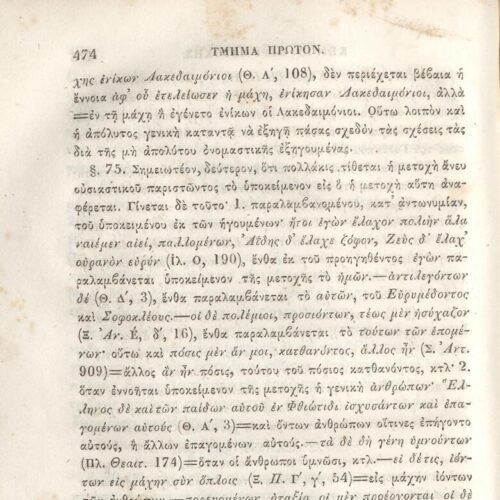 474 ΤΜΗΜΑ ΠΡΩΤΟΝ.
χης ἐνίκων Λακεδαιμόνιοι (Θ. Α′, 108), δὲν περιέχεται βέβαια ἡ
ἔννοια ἀφ' οὗ ἐτελείωσεν ἡ μάχη, ἐνίκησαν Λακεδαιμόνιοι, ἀλλὰ
=ἐν τῇ μάχῃ ἣ ἐγένετο ἐνίκων οἱ Λακεδαιμόνιοι. Οὕτω λοιπὸν καὶ
ἡ ἀπόλυτος γενικὴ καταντᾷ νὰ ἐξηγῇ πάσας σχεδὸν τὰς σχέσεις τὰς
διὰ τῆς μὴ ἀπολύτου ὀνομαστικῆς ἐξηγουμένας.
§. 75. Σημειωτέον, δεύτερον, ὅτι πολλάκις τίθεται ἡ μετοχὴ ἄνευ
οὐσιαστικοῦ παριστῶντος τὸ ὑποκείμενον εἰς ὃ ἡ μετοχὴ αὕτη ἀνα-
φέρεται. Γίνεται δὲ τοῦτο· 1. παραλαμβανομένου, κατ' ἀντωνυμίαν,
τοῦ ὑποκειμένου ἐκ τῶν ἡγουμένων· ἤτοι ἐγὼν ἔλαχον πολιὴν ἅλα
ναιέμεν αἰεί, παλλομένων, Ἀΐδης δ' ἔλαχε ζόφον, Ζεὺς δ' ἔλαχ'
οὐρανὸν εὐρύν (Ἰλ. Ο, 190), ἔνθα ἐκ τοῦ προηγηθέντος ἐγὼν παρα-
λαμβάνεται ὑποκείμενον τῆς μετοχῆς τὸ ἡμῶν.—ἀντιλεγόντων
δέ (Θ. Δ′, 3), ἔνθα παραλαμβάνεται τὸ αὐτῶν, τοῦ Εὐρυμέδοντος
καὶ Σοφοκλέους.—οἱ δὲ πολέμιοι, προσιόντων, τέως μὲν ἡσύχαζον
(Ξ. Ἀν. Ε, δ′, 16), ἔνθα παραλαμβάνεται τὸ τούτων τῶν ἑπομέ-
νων· οὕτω καὶ πόσις μὲν ἄν μοι, κατθανόντος, ἄλλος ἦν (Σ. Ἀντ.
909)=ἄλλος ἂν ἦν πόσις, τούτου τοῦ πόσιος κατθανόντος, κτλ· 2.
ὅταν ἐννοῆται ὑποκείμενον τῆς μετοχῆς ἡ γενικὴ ἀνθρώπων· Ἕλ-
ληνος δὲ καὶ τῶν παίδων αὐτοῦ ἐν Φθιώτιδι ἰσχυσάντων καὶ ἐπα-
γομένων αὐτούς (Θ. Α′, 3)=καὶ ὄντων ἀνθρώπων οἵτινες ἐπήγοντο
αὐτούς, ἢ ἄλλων ἐπαγομένων αὐτούς.—τὰ δὲ δὴ γένη ὑμνούντων
(Πλ. Θεαιτ. 174)=ὅταν οἱ ἄνθρωποι ὑμνῶσι, κτλ.—εἰ δέτις, ἰόν-
των εἰς μάχην σὺν ὅπλοις (Ξ. Π. Γ′, γ′, 54)=εἰς μάχην ἰόντων